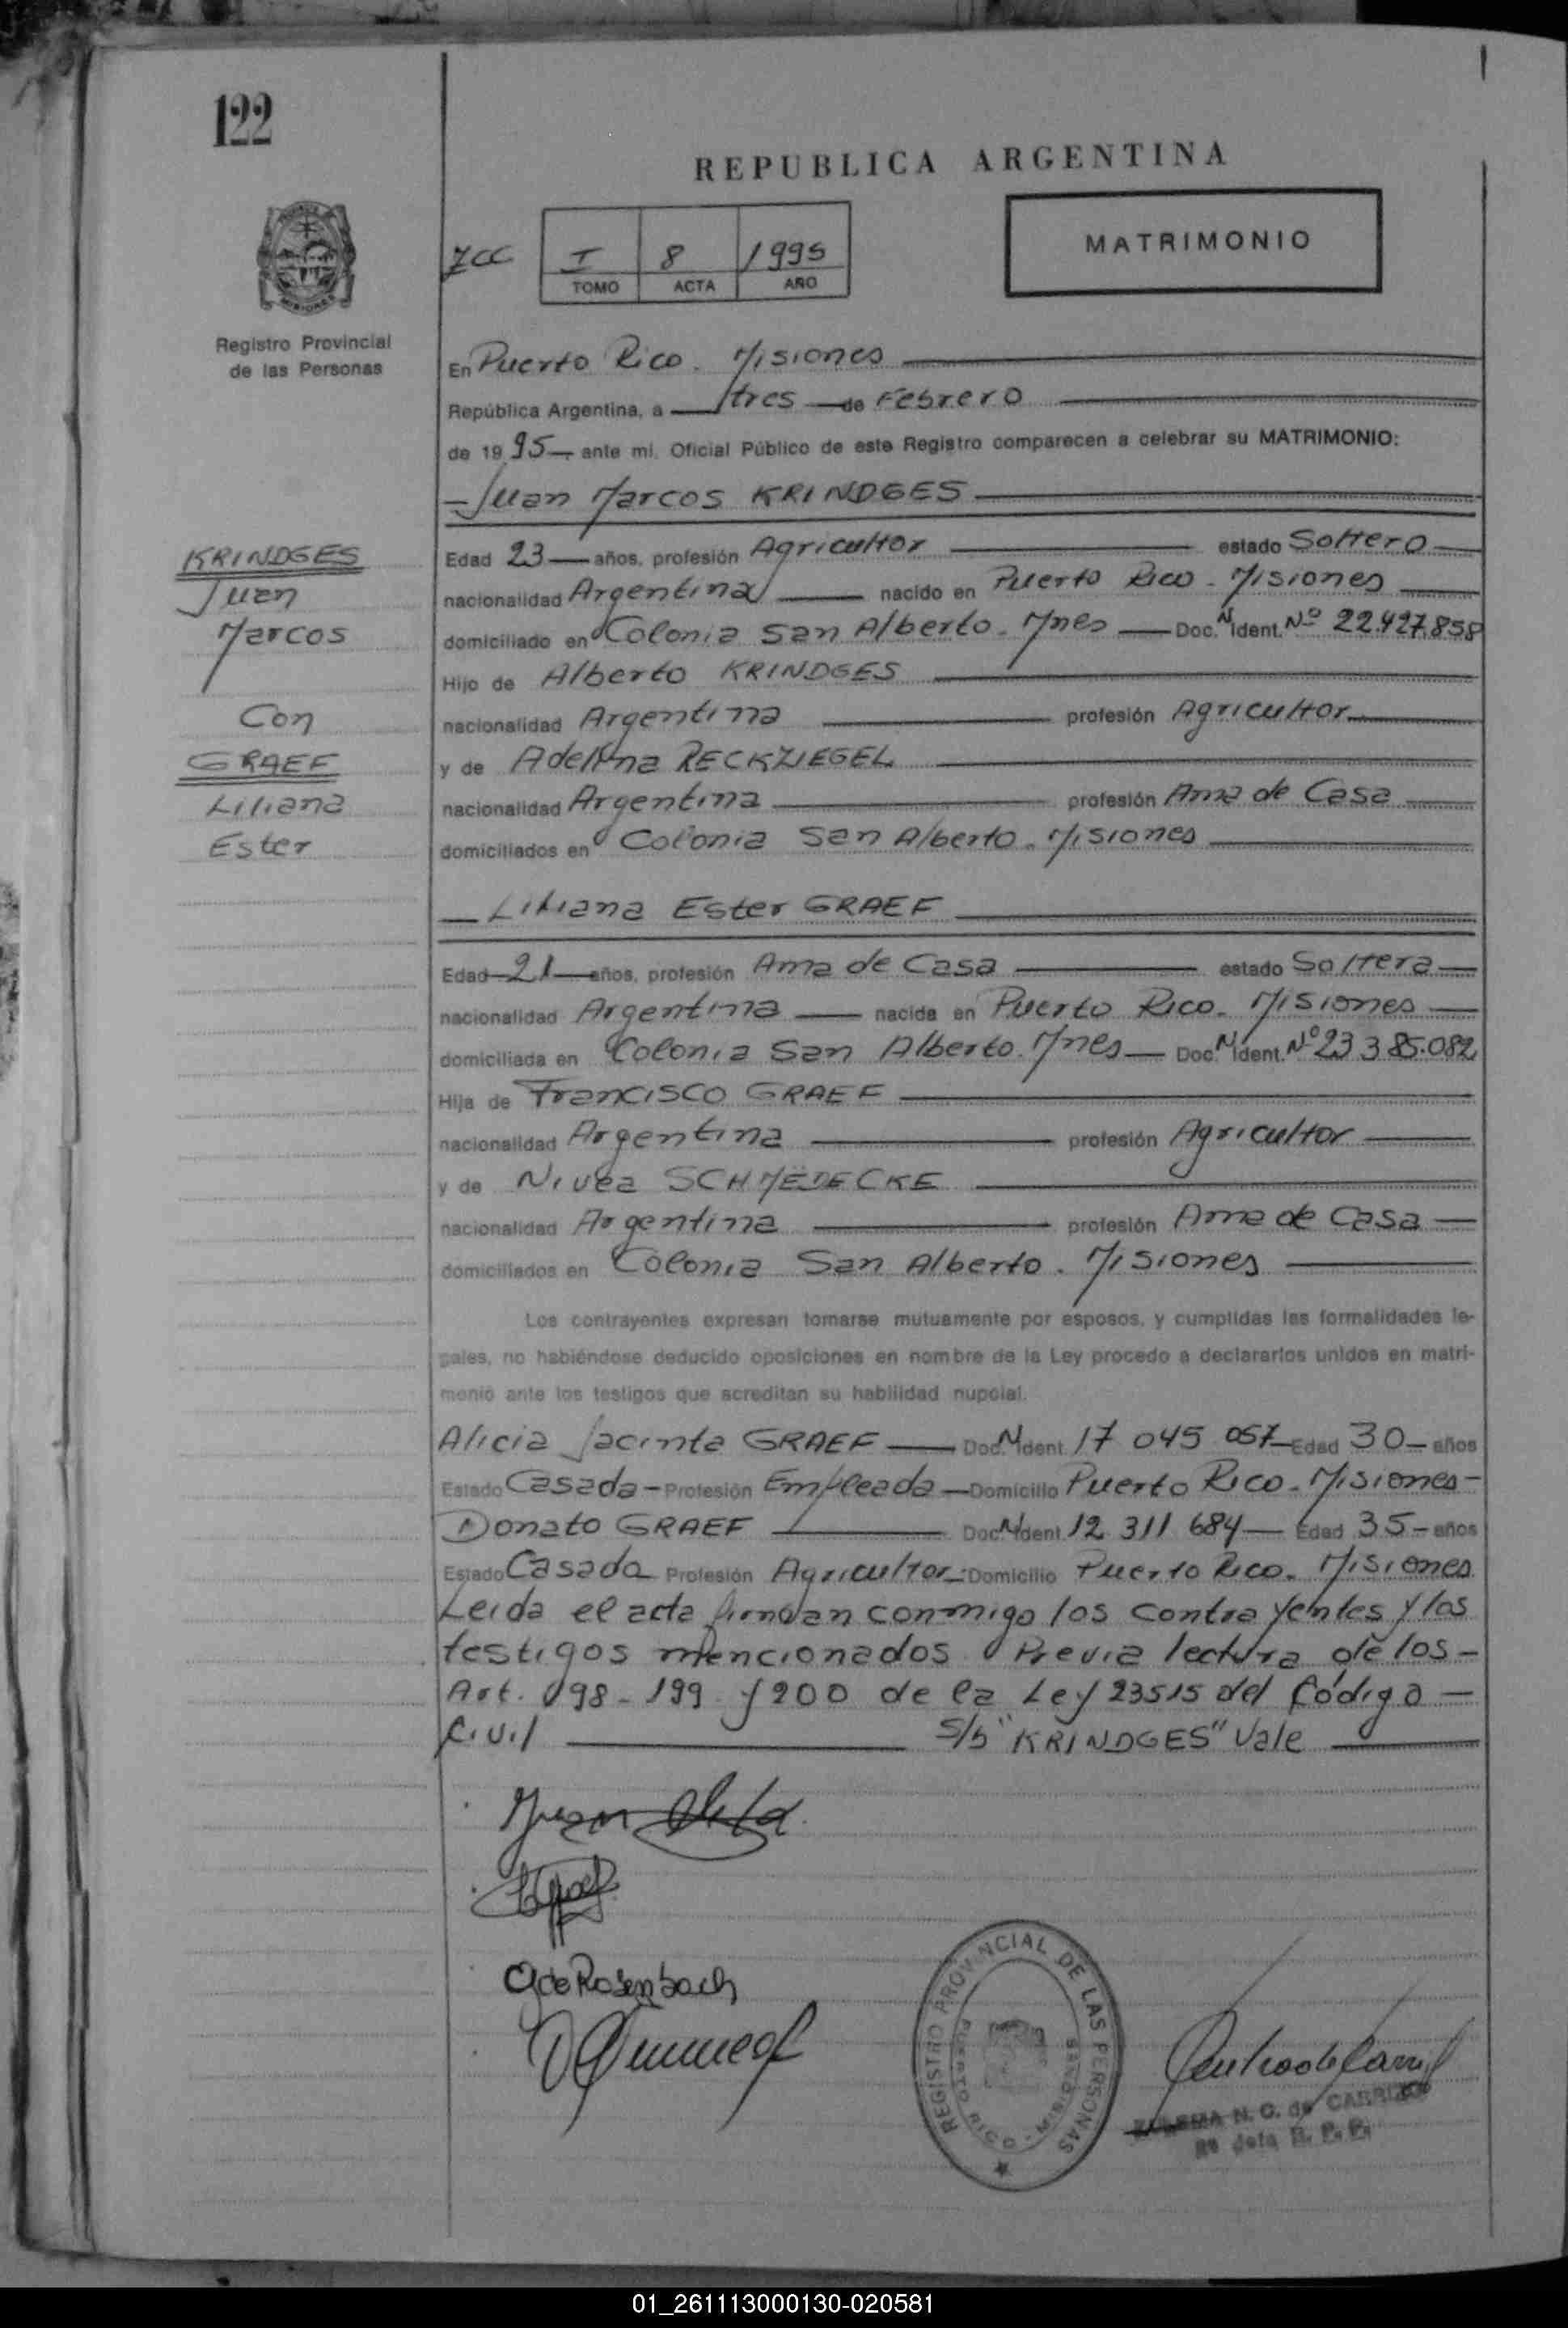 122
REPUBLICA ARGENTINA
I 8 1995
TOMO ACTA AÑO
MATRIMONIO
Registro Provincial
de las Personas
En Puerto Rico. Misiones
República Argentina, a tres de Febrero
de 1995 ante mi, Oficial Público de este Registro comparecen a celebrar su MATRIMONIO:
Juan Marcos KRINDGES
KRINDGES
Juan
Marcos
Con
GRAEF
Liliana
Ester
Edad 23 años, profesión Agricultor estado Soltero
nacionalidad Argentina nacido en Puerto Rico - Misiones
domiciliado en Colonia San Alberto. Mnes Doc. N. Ident. Nº 22.427.858
Hijo de Alberto KRINDGES
nacionalidad Argentina profesión Agricultor
y de Adelina RECKZIEGEL
nacionalidad Argentina profesión Ama de Casa
domiciliados en Colonia San Alberto. Misiones
Liliana Ester GRAEF
Edad 21 años, profesión Ama de Casa estado Soltera
nacionalidad Argentina nacida en Puerto Rico. Misiones
domiciliada en Colonia San Alberto. Mnes Doc. N. Ident. Nº 23 385.082
Hija de Francisco GRAEF
nacionalidad Argentina profesión Agricultor
y de Nivea SCHMEDECKE
nacionalidad Argentina profesión Ama de Casa
domiciliados en Colonia San Alberto. Misiones
Los contrayentes expresan tomarse mutuamente por esposos, y cumplidas las formalidades le-
gales, no habiéndose deducido oposiciones en nombre de la Ley procedo a declararlos unidos en matri-
monio ante los testigos que acreditan su habilidad nupcial.
Alicia Jacinta GRAEF Doc. N. Ident. 17 045 057 Edad 30 años
Estado Casada - Profesión Empleada - Domicilio Puerto Rico. Misiones -
Donato GRAEF Doc. N. Ident. 12 311 684 Edad 35 - años
Estado Casado Profesión Agricultor - Domicilio Puerto Rico. Misiones
Leida el acta firman conmigo los contrayentes y los
testigos mencionados. Previa lectura de los -
Art. 198 - 199 y 200 de la Ley 23515 del Código -
Civil S/b "KRINDGES" Vale
Juan
G de Rosenbach
REGISTRO PROVINCIAL DE LAS PERSONAS
PUERTO RICO - MISIONES
N. C. de CARRIZO
R. P. P.
01_261113000130-020581